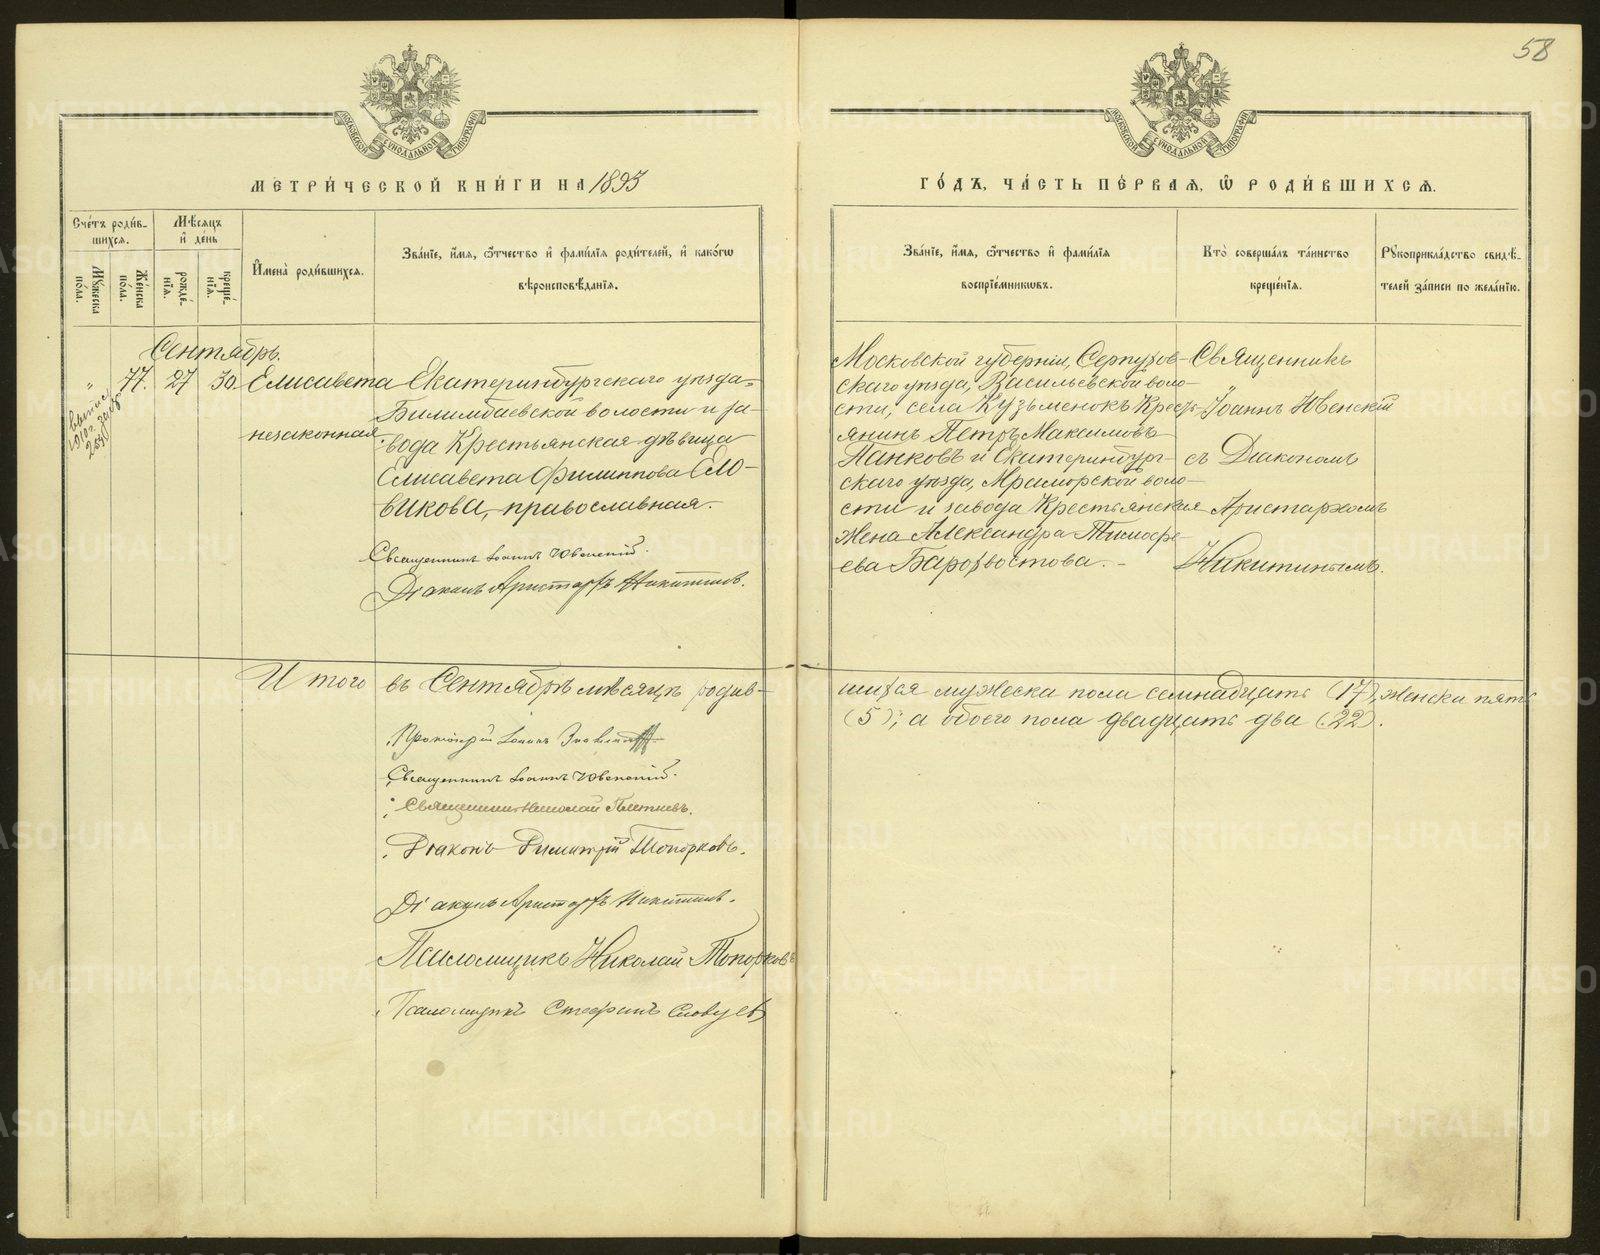 58
МОСКОВСКОЙ СѴНОДАЛЬНОЙ ТИПОГРАФІИ
МОСКОВСКОЙ СѴНОДАЛЬНОЙ ТИПОГРАФІИ
МЕТРИ́ЧЕСКОЙ КНИ́ГИ НА 1893
ГО́ДЪ, ЧА́СТЬ ПЕ́РВАЯ, Ѡ РОДИ́ВШИХСЯ.
Сче́тъ роди́в-
шихся.
Мѣ́сяцъ
и҆ де́нь
Мꙋ́жеска
по́ла.
Же́нска
по́ла.
рожде́-
нїѧ.
креще́-
нїѧ.
И҆мена̀ роди́вшихся.
Зва́нїе, и҆́мѧ, ѻ҆́тчество и҆ фами́лїѧ роди́телей, и҆ како́гѡ
вѣроисповѣ́данїѧ.
Зва́нїе, и҆́мѧ, ѻ҆́тчество и҆ фами́лїѧ
воспрїе́мникѡвъ.
Кто̀ соверша́лъ та́инство
креще́нїѧ.
Рꙋкоприкла́дство свидѣ́-
телей за́писи по жела́нїю.
Сентябрь.
" 77. 27 30. Елисавета
незаконная
1910 г.
Екатеринбургскаго уѣзда-
Билимбаевской волости и за-
вода Крестьянская дѣвица
Елисавета Филиппова Ело-
викова, православная.
Священникъ Іоаннъ Ювенскій.
Діаконъ Аристархъ Никитинъ.
Московской губерніи, Серпухов-
скаго уѣзда, Васильевской воло-
сти, села Кузьменокъ Крестъ-
янинъ Петръ Максимовъ
Панковъ и Екатеринбург-
скаго уѣзда, Мраморской воло-
сти и завода Крестьянская
жена Александра Тимофе-
ева Барохвостова. -
Священникъ
Іоаннъ Ювенскій
съ Діакономъ
Аристархомъ
Никитинымъ.
Итого въ Сентябрѣ мѣсяцѣ родив-
шихся мужеска пола семнадцать (17), женска пять
(5); а обоего пола двадцать два (22).
Протоіерей Іоаннъ
Священникъ Іоаннъ Ювенскій.
Священникъ Николай Плетневъ.
Діаконъ Димитрій Топорковъ.
Діаконъ Аристархъ Никитинъ.
Псаломщикъ Николай Топорковъ
Псаломщикъ Стефанъ Словцевъ
METRIKI.GASO-URAL.RU